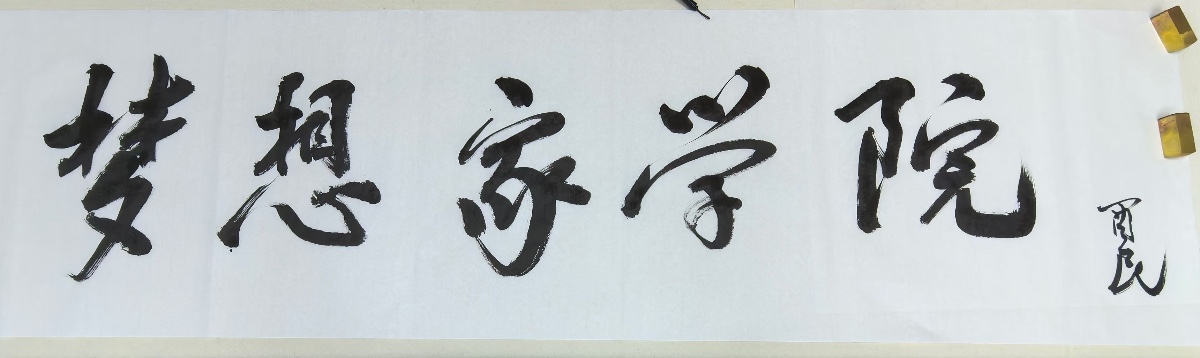 梦想家学院